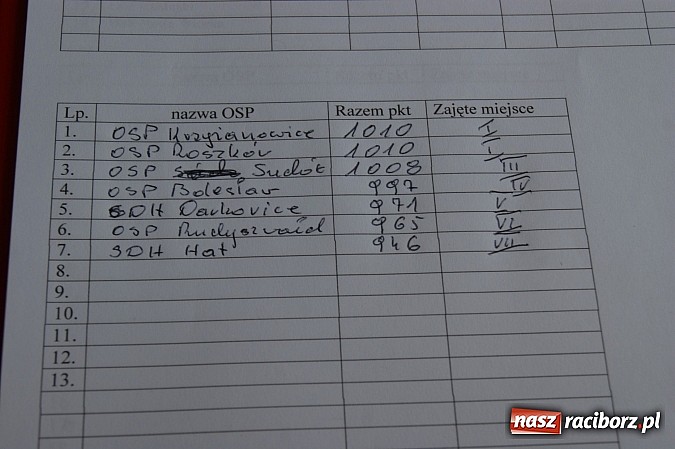 Lp. nazwa OSP Razem pkt Zajęte miejsce
1. OSP Krzyżanowice 1010 I
2. OSP Roszków 1010 I
3. OSP Sudół 1008 III
4. OSP Bolesław 997 IV
5. SDH Darkovice 971 V
6. OSP Rudyszwałd 965 VI
7. SDH Hat 946 VII
8.
9.
10.
11.
12.
13.
nasz raciborz.pl